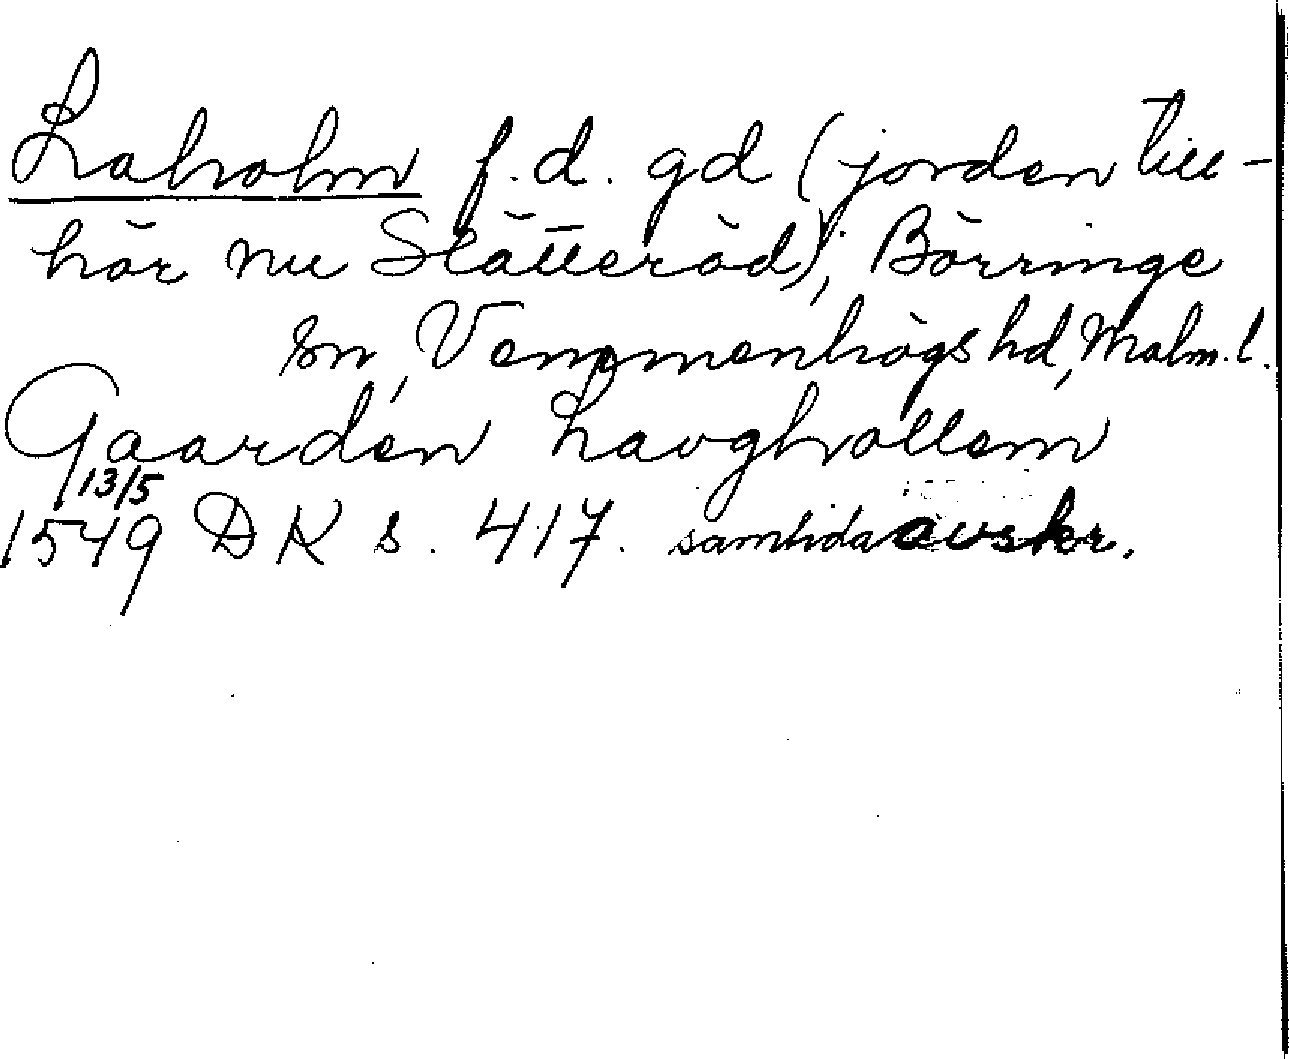 Laholm f.d. gd (jorden till-
hör nu Slätteröd), Börringe
sn, Vemmenhögs hd, Malm. l.
Gaarden Lavghollem
13/5
1549 DK s. 417. samtida avskr.